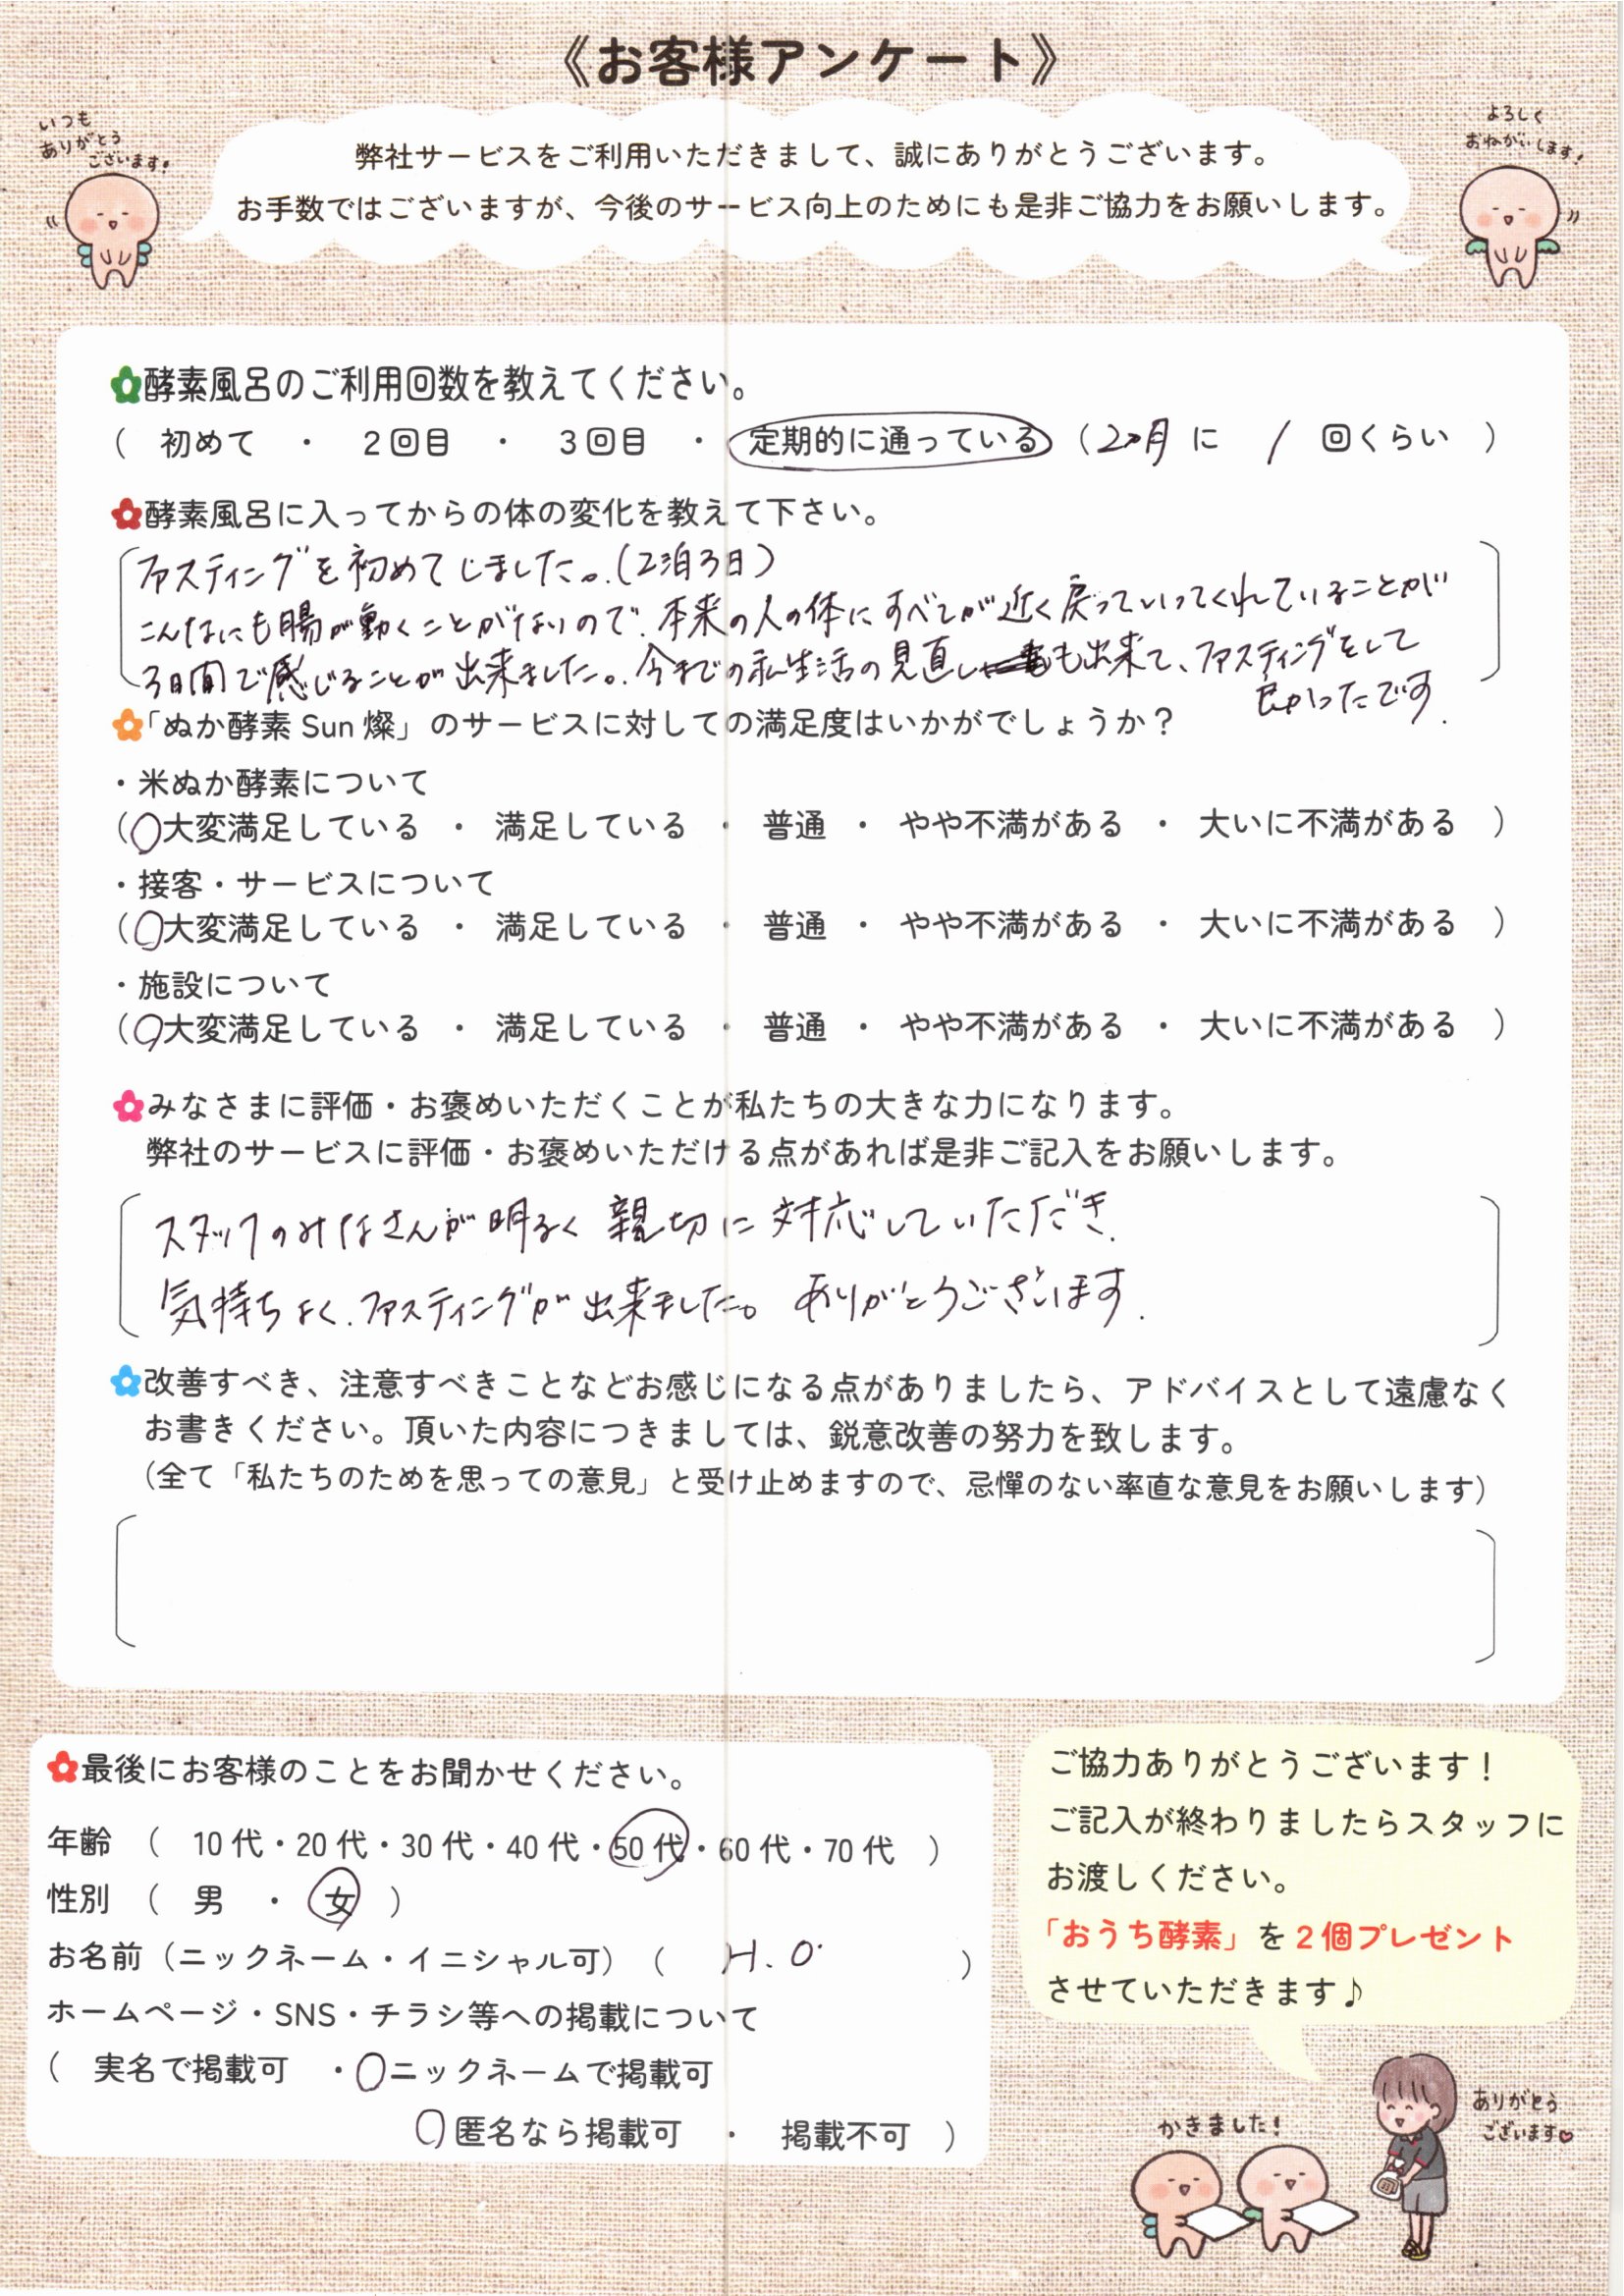 《お客様アンケート》
いつも
ありがとう
ございます!
よろしく
おねがいします!
弊社サービスをご利用いただきまして、誠にありがとうございます。
お手数ではございますが、今後のサービス向上のためにも是非ご協力をお願いします。
酵素風呂のご利用回数を教えてください。
( 初めて ・ 2回目 ・ 3回目 ・ 定期的に通っている (2ヶ月 に 1 回くらい )
酵素風呂に入ってからの体の変化を教えて下さい。
ファスティングを初めてしました。(2泊3日)
こんなにも腸が動くことがないので、本来の人の体にすべてが近く戻っていってくれていることが
3日間で感じることが出来ました。今までの私生活の見直しも出来て、ファスティングをして
良かったです.
「ぬか酵素 Sun 燦」のサービスに対しての満足度はいかがでしょうか?
・米ぬか酵素について
(○大変満足している ・ 満足している ・ 普通 ・ やや不満がある ・ 大いに不満がある )
・接客・サービスについて
(○大変満足している ・ 満足している ・ 普通 ・ やや不満がある ・ 大いに不満がある )
・施設について
(○大変満足している ・ 満足している ・ 普通 ・ やや不満がある ・ 大いに不満がある )
みなさまに評価・お褒めいただくことが私たちの大きな力になります。
弊社のサービスに評価・お褒めいただける点があれば是非ご記入をお願いします。
スタッフのみなさんが明るく親切に対応していただき.
気持ちよく.ファスティングが出来ました。ありがとうございます.
改善すべき、注意すべきことなどお感じになる点がありましたら、アドバイスとして遠慮なく
お書きください。頂いた内容につきましては、鋭意改善の努力を致します。
(全て「私たちのためを思っての意見」と受け止めますので、忌憚のない率直な意見をお願いします)
最後にお客様のことをお聞かせください。
年齢 ( 10代・20代・30代・40代・50代・60代・70代 )
性別 ( 男 ・ 女 )
お名前(ニックネーム・イニシャル可) ( H.O. )
ホームページ・SNS・チラシ等への掲載について
( 実名で掲載可 ・○ニックネームで掲載可
○匿名なら掲載可 ・ 掲載不可 )
ご協力ありがとうございます!
ご記入が終わりましたらスタッフに
お渡しください。
「おうち酵素」を2個プレゼント
させていただきます♪
かきました!
ありがとう
ございます♡